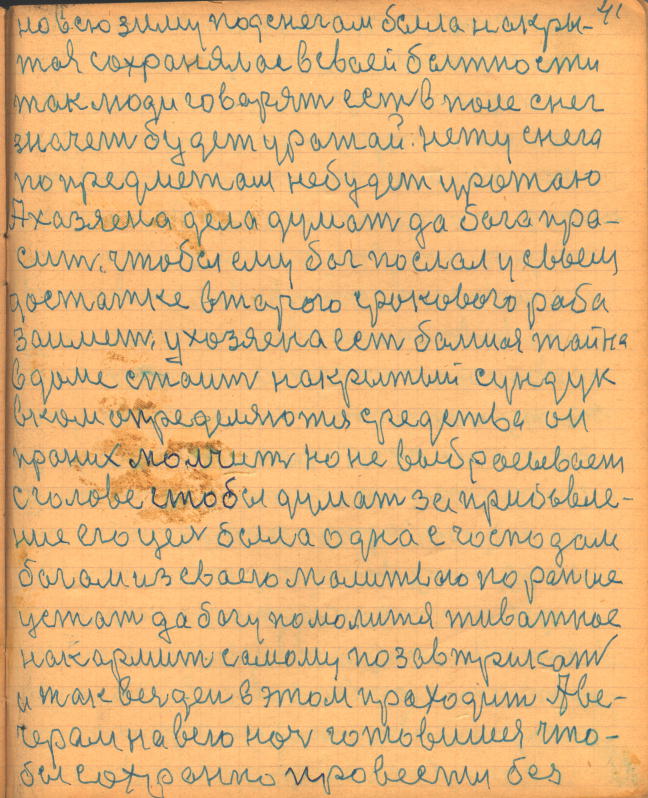 41
но всю зиму подснегам была накры-
тая сохранялас в сваей бытности
так люди говарят ест в поле снег
значет будет уражай. нету снега
по предметам небудет урожаю
А хазяена дела думат да бога пра-
сит. чтобы ему бог послал у своем
достатке второго срокового раба
заимет. у хозяена ест балшая тайна
в доме стаит накрытый сундук
вком определяются средства он
праних молчит но не выбрасывает
сголове чтобы думат за прибывле-
ние его цел была одна с господам
богам из сваею малитвою по ранше
устат да богу помолится живатное
накармит самому позавтрикат
и так вес ден в этом праходит А ве-
черам на всю ноч готовился что-
бы сохранно провести без